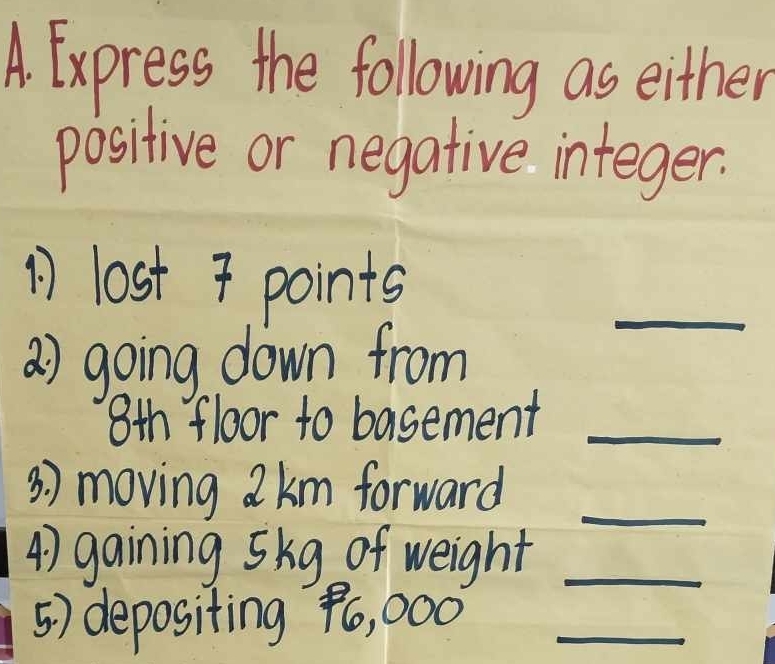 A. Express the following as either
positive or negative integer.
1.) lost 7 points
2.) going down from
8th floor to basement
3.) moving 2km forward
4.) gaining 5kg of weight
5.) depositing ₱6,000